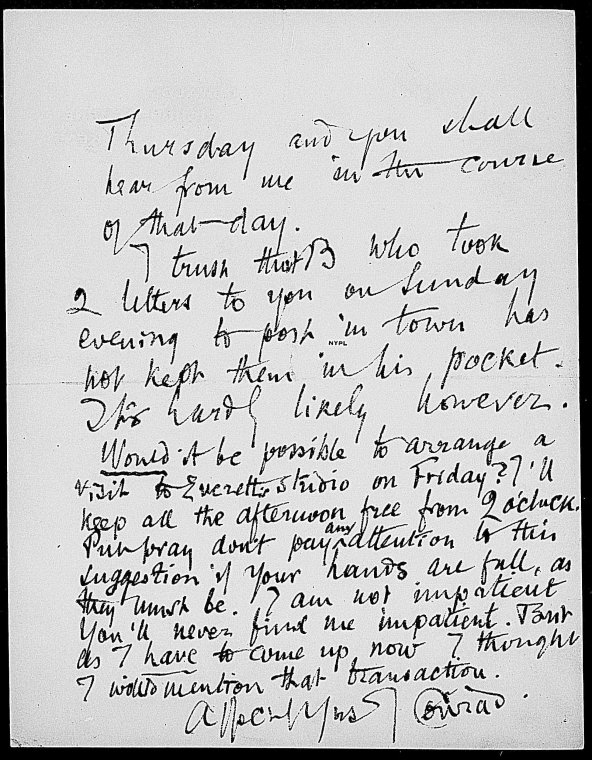 Thursday and you shall
hear from me in the course
of that day.
I trust that B who took
2 letters to you on Sunday
evening to post in town has
NYPL
not kept them in his pocket.
It's hardly likely however.
Would it be possible to arrange a
visit to Everett's Studio on Friday? I'll
keep all the afternoon free from 2 o'clock.
But pray don't pay any attention to this
suggestion if your hands are full, as
they must be. I am not impatient
You'll never find me impatient. But
as I have to come up now I thought
I would mention that transaction.
Yrs J Conrad.